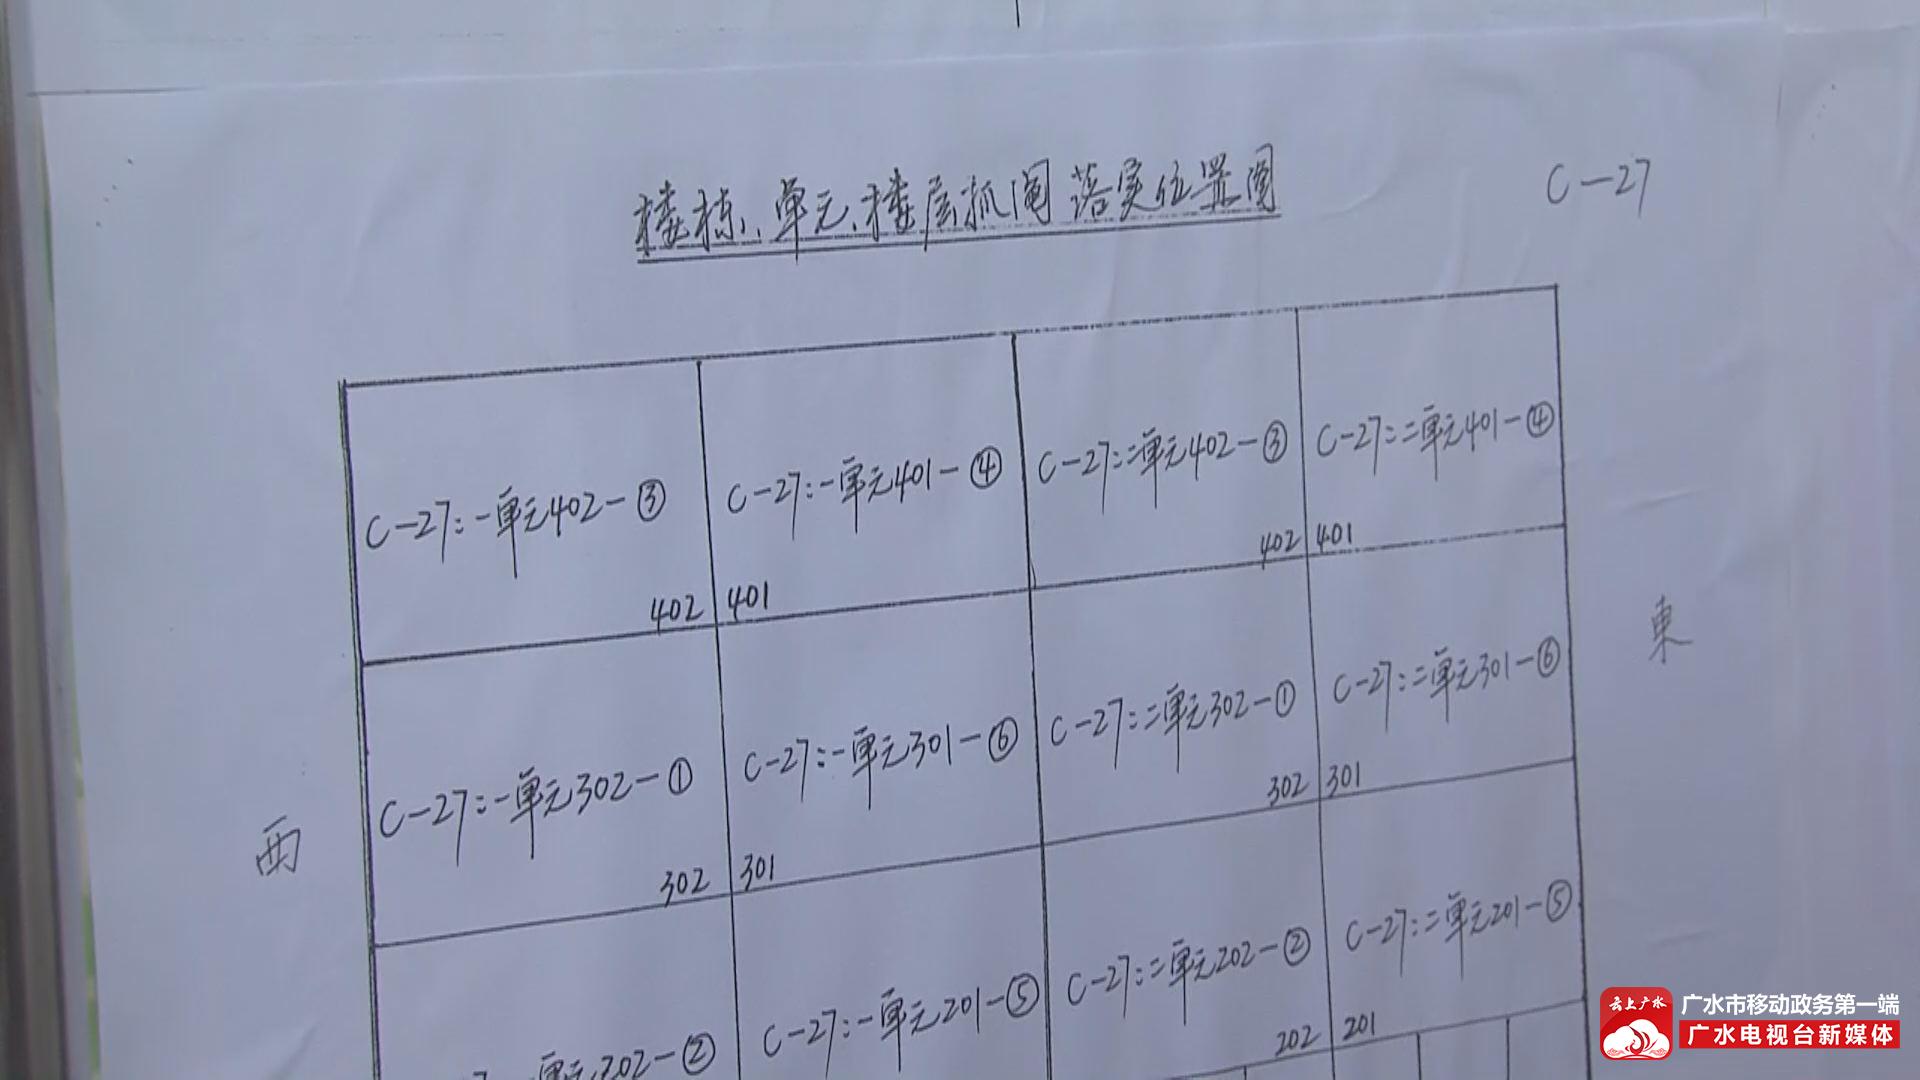 楼栋、单元、楼层抓阄落实位置图
C-27
C-27:一单元402-③
C-27:一单元401-④
C-27:二单元402-③
C-27:二单元401-④
402
401
402
401
東
C-27:一单元302-①
C-27:一单元301-⑥
C-27:二单元302-①
C-27:二单元301-⑥
302
301
302
301
西
单元202-②
C-27:一单元201-⑤
C-27:二单元202-②
C-27:二单元201-⑤
202
201
云上广水
广水市移动政务第一端
广水电视台新媒体